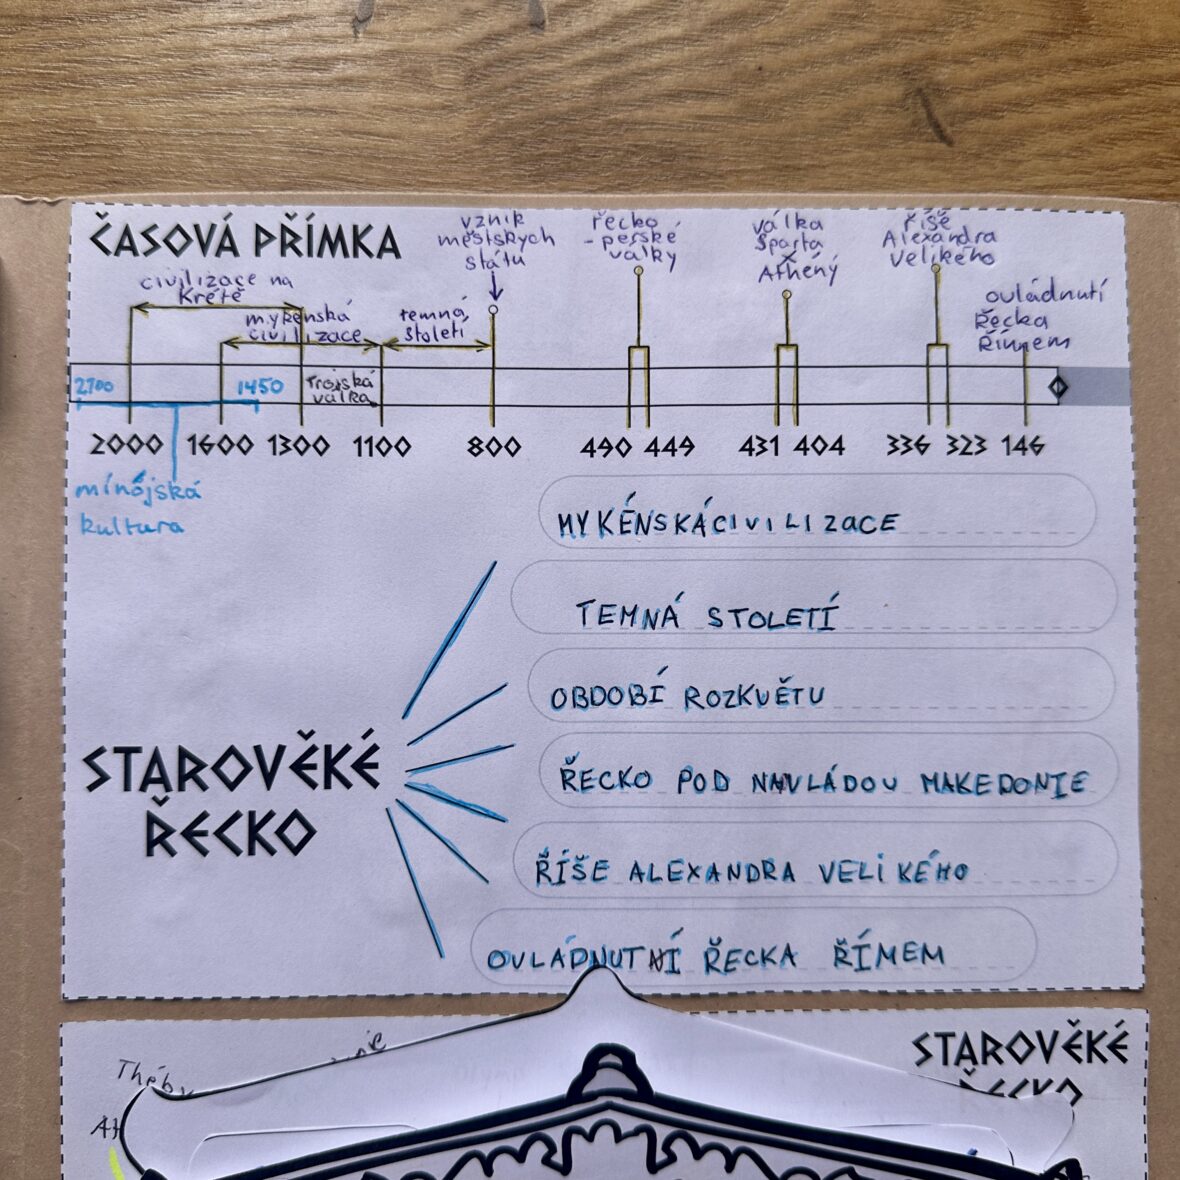 ČASOVÁ PŘÍMKA
civilizace na
Krétě
mykénská
civilizace
temná
století
vznik
městských
států
řecko
-perské
války
válka
Sparta
x
Athény
říše
Alexandra
Velikého
ovládnutí
Řecka
Římem
2700
1450
Trojská
válka
2000 1600 1300 1100 800 490 449 431 404 336 323 146
mínójská
kultura
MYKÉNSKÁ CIVILIZACE
TEMNÁ STOLETÍ
OBDOBÍ ROZKVĚTU
ŘECKO POD NAVLÁDOU MAKEDONIE
ŘÍŠE ALEXANDRA VELIKÉHO
OVLÁDNUTNÍ ŘECKA ŘÍMEM
STAROVĚKÉ
ŘECKO
STAROVĚKÉ
ŘECKO
Théby